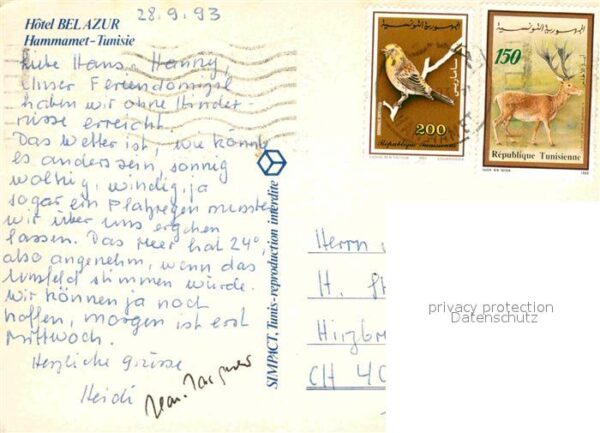 28.9.93
Hôtel BEL AZUR
Hammamet-Tunisie
Liebe Hans + Hanny,
Unser Feriendomizil
haben wir ohne Hinder-
nisse erreicht.
Das Wetter ist, wie könnte
es anders sein, sonnig
wolkig, windig, ja
sogar ein Platzregen mussten
wir über uns ergehen
lassen. Das Meer hat 24°,
also angenehm, wenn das
Umfeld stimmen würde.
Wir können ja noch
hoffen, morgen ist erst
Mittwoch.
Herzliche Grüsse
Heidi Jean-Jacques
SIMPACT, Tunis-reproduction interdite
الجمهورية التونسية
200
République Tunisienne
الجمهورية التونسية
150
République Tunisienne
Herrn
H. St
Hirzbr
CH 40
privacy protection
Datenschutz